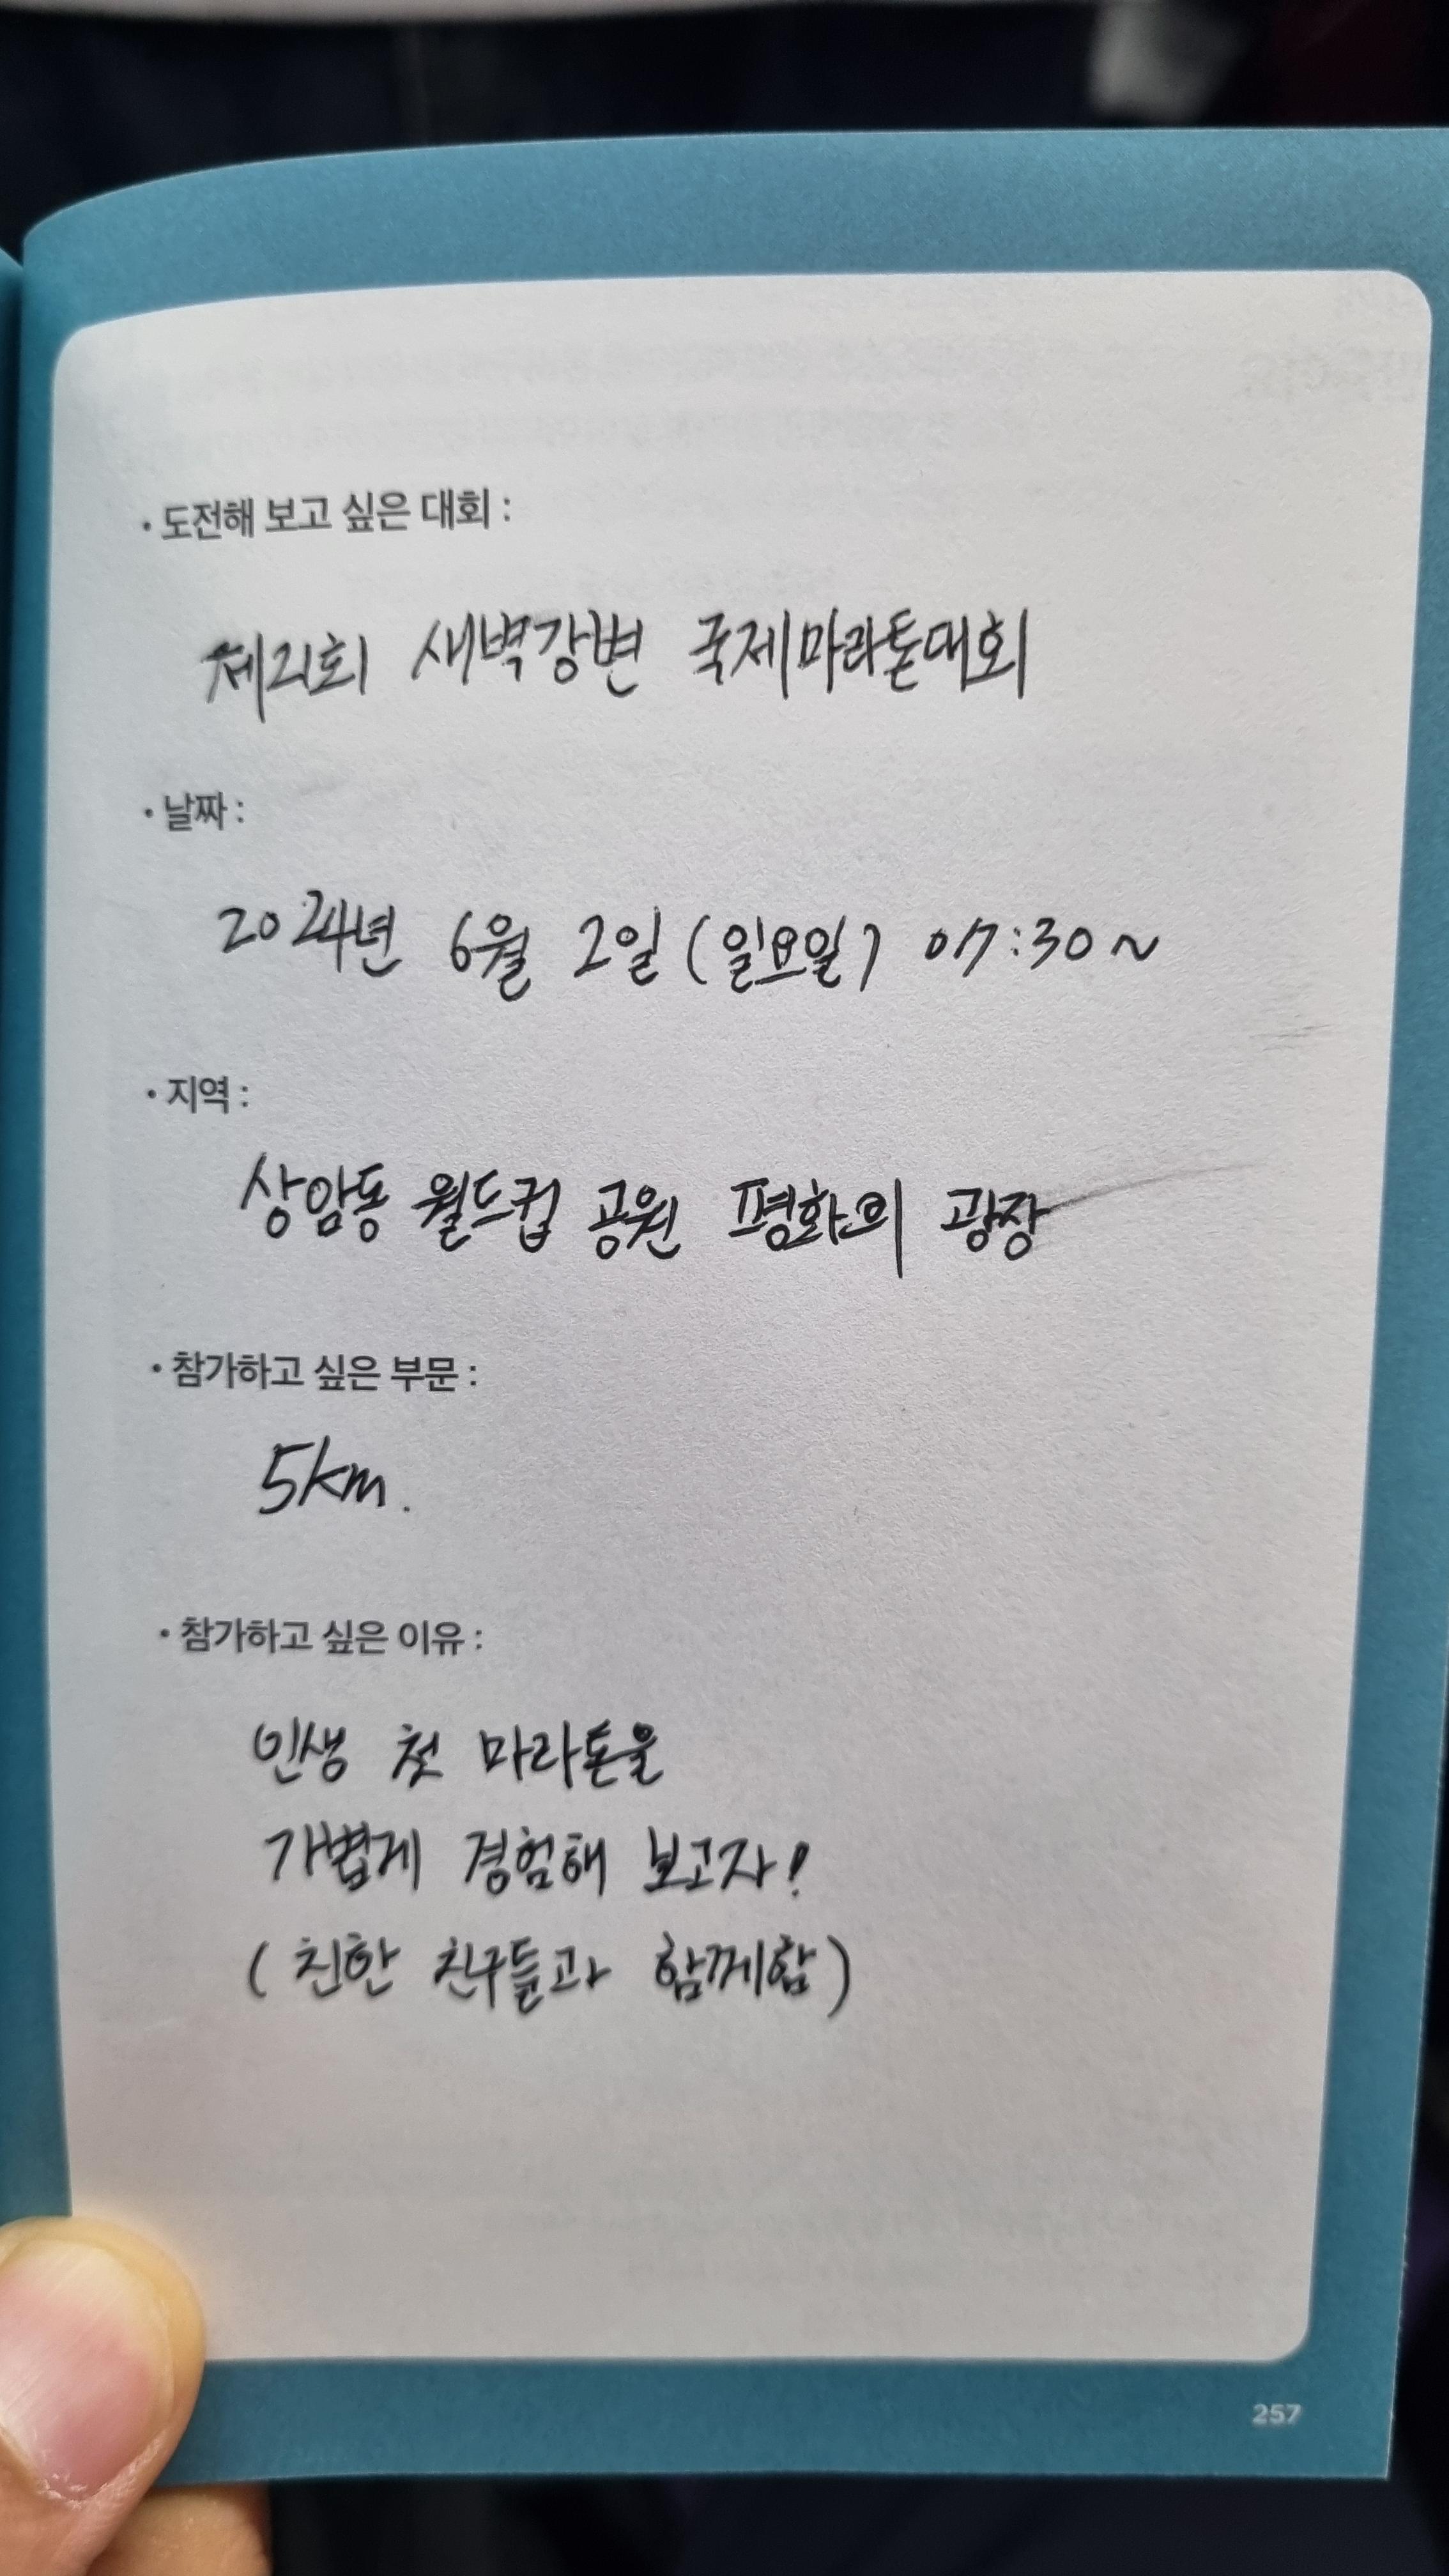 • 도전해 보고 싶은 대회 :
제21회 새벽강변 국제마라톤대회
• 날짜 :
2024년 6월 2일 (일요일) 07:30~
• 지역 :
상암동 월드컵 공원 평화의 광장
• 참가하고 싶은 부문 :
5km.
• 참가하고 싶은 이유 :
인생 첫 마라톤을
가볍게 경험해 보고자!
(친한 친구들과 함께함)
257